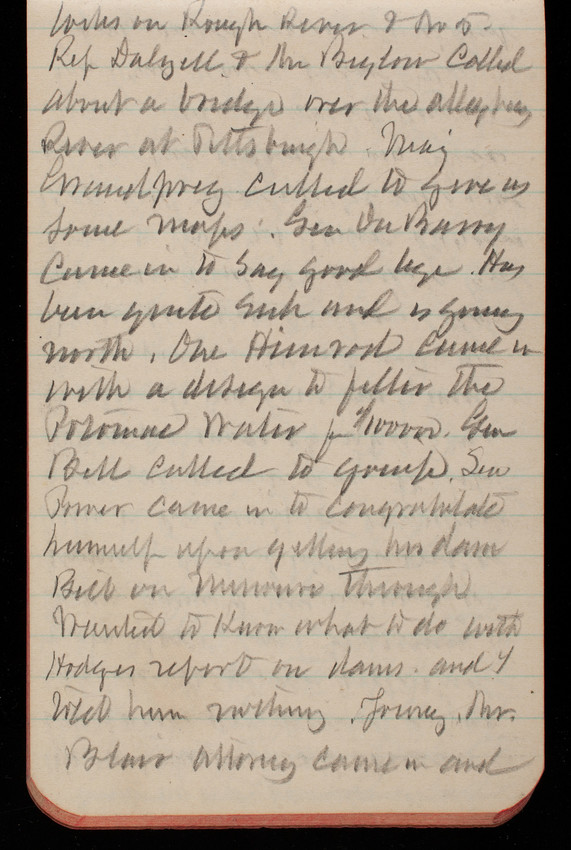 locks on Rough River & No 5.
Rep Dalzell & Mr Bigelow Called
about a bridge over the Allegheny
River at Pittsburgh. Maj
Grandprey called to give us
some maps. Gen Du Barry
Came in to say good bye. Has
been quite sick and is going
north. One Himrod came in
with a design to filter the
Potomac Water for
Bell called to gossip. Sen
Power came in to congratulate
himself upon getting his dam
Bill on Missouri through.
Wanted to Know what to do with
Hodges report on dams. and I
told him nothing. Mr.
Blair attorney came in and